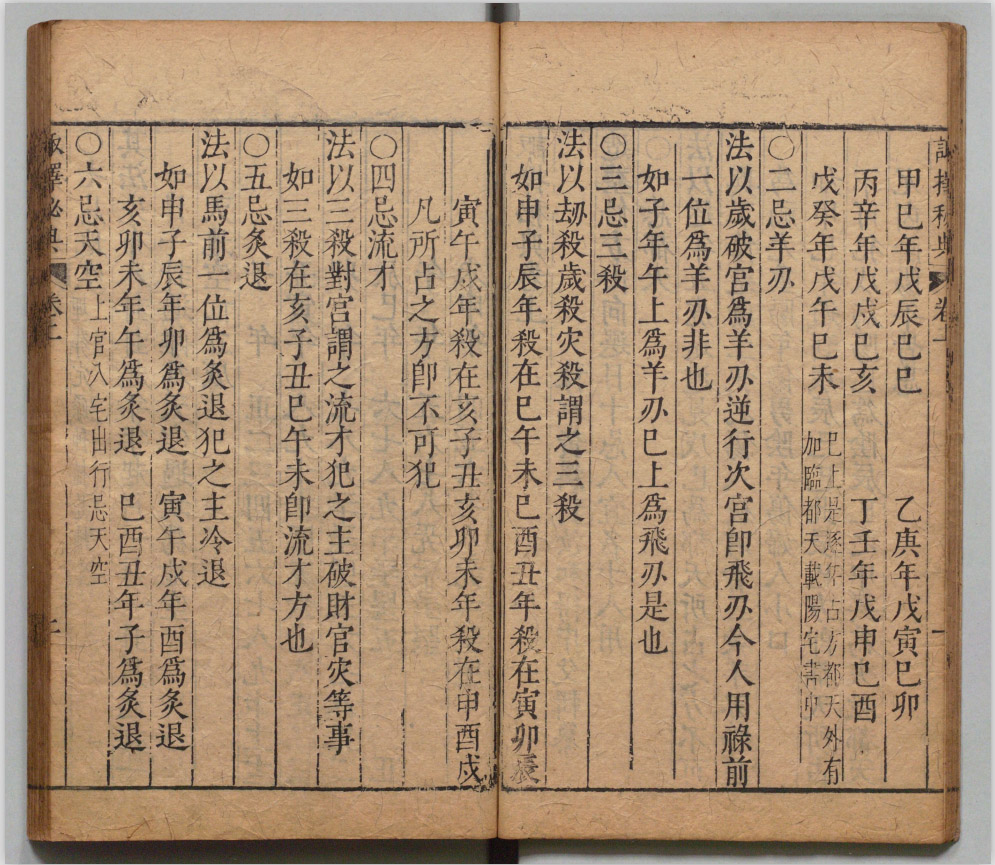 甲巳年戊辰巳巳　乙庚年戊寅巳卯
丙辛年戊戌巳亥　丁壬年戊申巳酉
戊癸年戊午巳未　巳上是逐年占方都天外有
加臨都天載陽宅書中
○二忌羊刃
法以歲破宫爲羊刃逆行次宫卽飛刃今人用祿前
一位爲羊刃非也
如子年午上爲羊刃巳上爲飛刃是也
○三忌三殺
法以刼殺歲殺灾殺謂之三殺
如申子辰年殺在巳午未巳酉丑年殺在寅卯辰
寅午戌年殺在亥子丑亥卯未年殺在申酉戌
凡所占之方卽不可犯
○四忌流才
法以三殺對宫謂之流才犯之主破財官灾等事
如三殺在亥子丑巳午未卽流才方也
○五忌灸退
法以馬前一位爲灸退犯之主冷退
如申子辰年卯爲灸退　寅午戌年酉爲灸退
亥卯未年午爲灸退　巳酉丑年子爲灸退
○六忌天空上官入宅出行忌天空
擇秘典　卷二　二